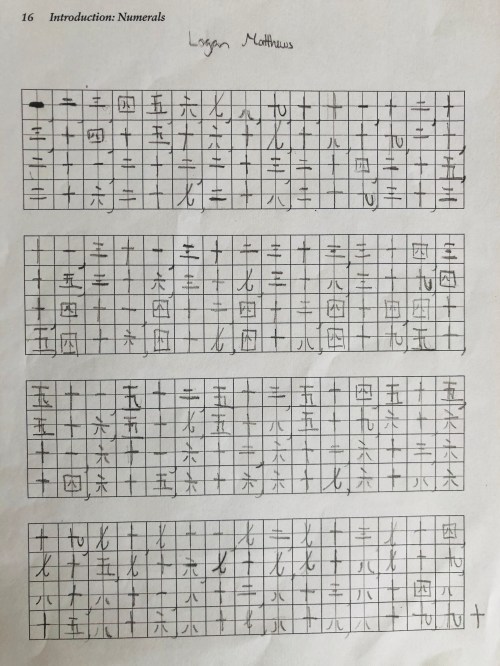 16 Introduction: Numerals
Logan Matthews
一二三四五六七八九十十一十二十
三十四十五十六十七十八十九二十
二十一二十二二十三二十四二十五
二十六二十七二十八二一九三十三
十一三十一三十二三十三三十四三
十五三十六三十七三十八三十九四
十四十一四十二四十三四十四四十
五四十六四十七四十八四十九五十
五十一五十二五十三五十四五十五
五十六五十七五十八五十九六十六
十一六十一六十二六十二六十三六
十四六十五六十六六十七六十八六
十九七十七十一七二七十三七十四
七十五七十六七十七七十八七十九
八十八十一八十二八十三八十四八
十五八十六八十七八十八八十九九十